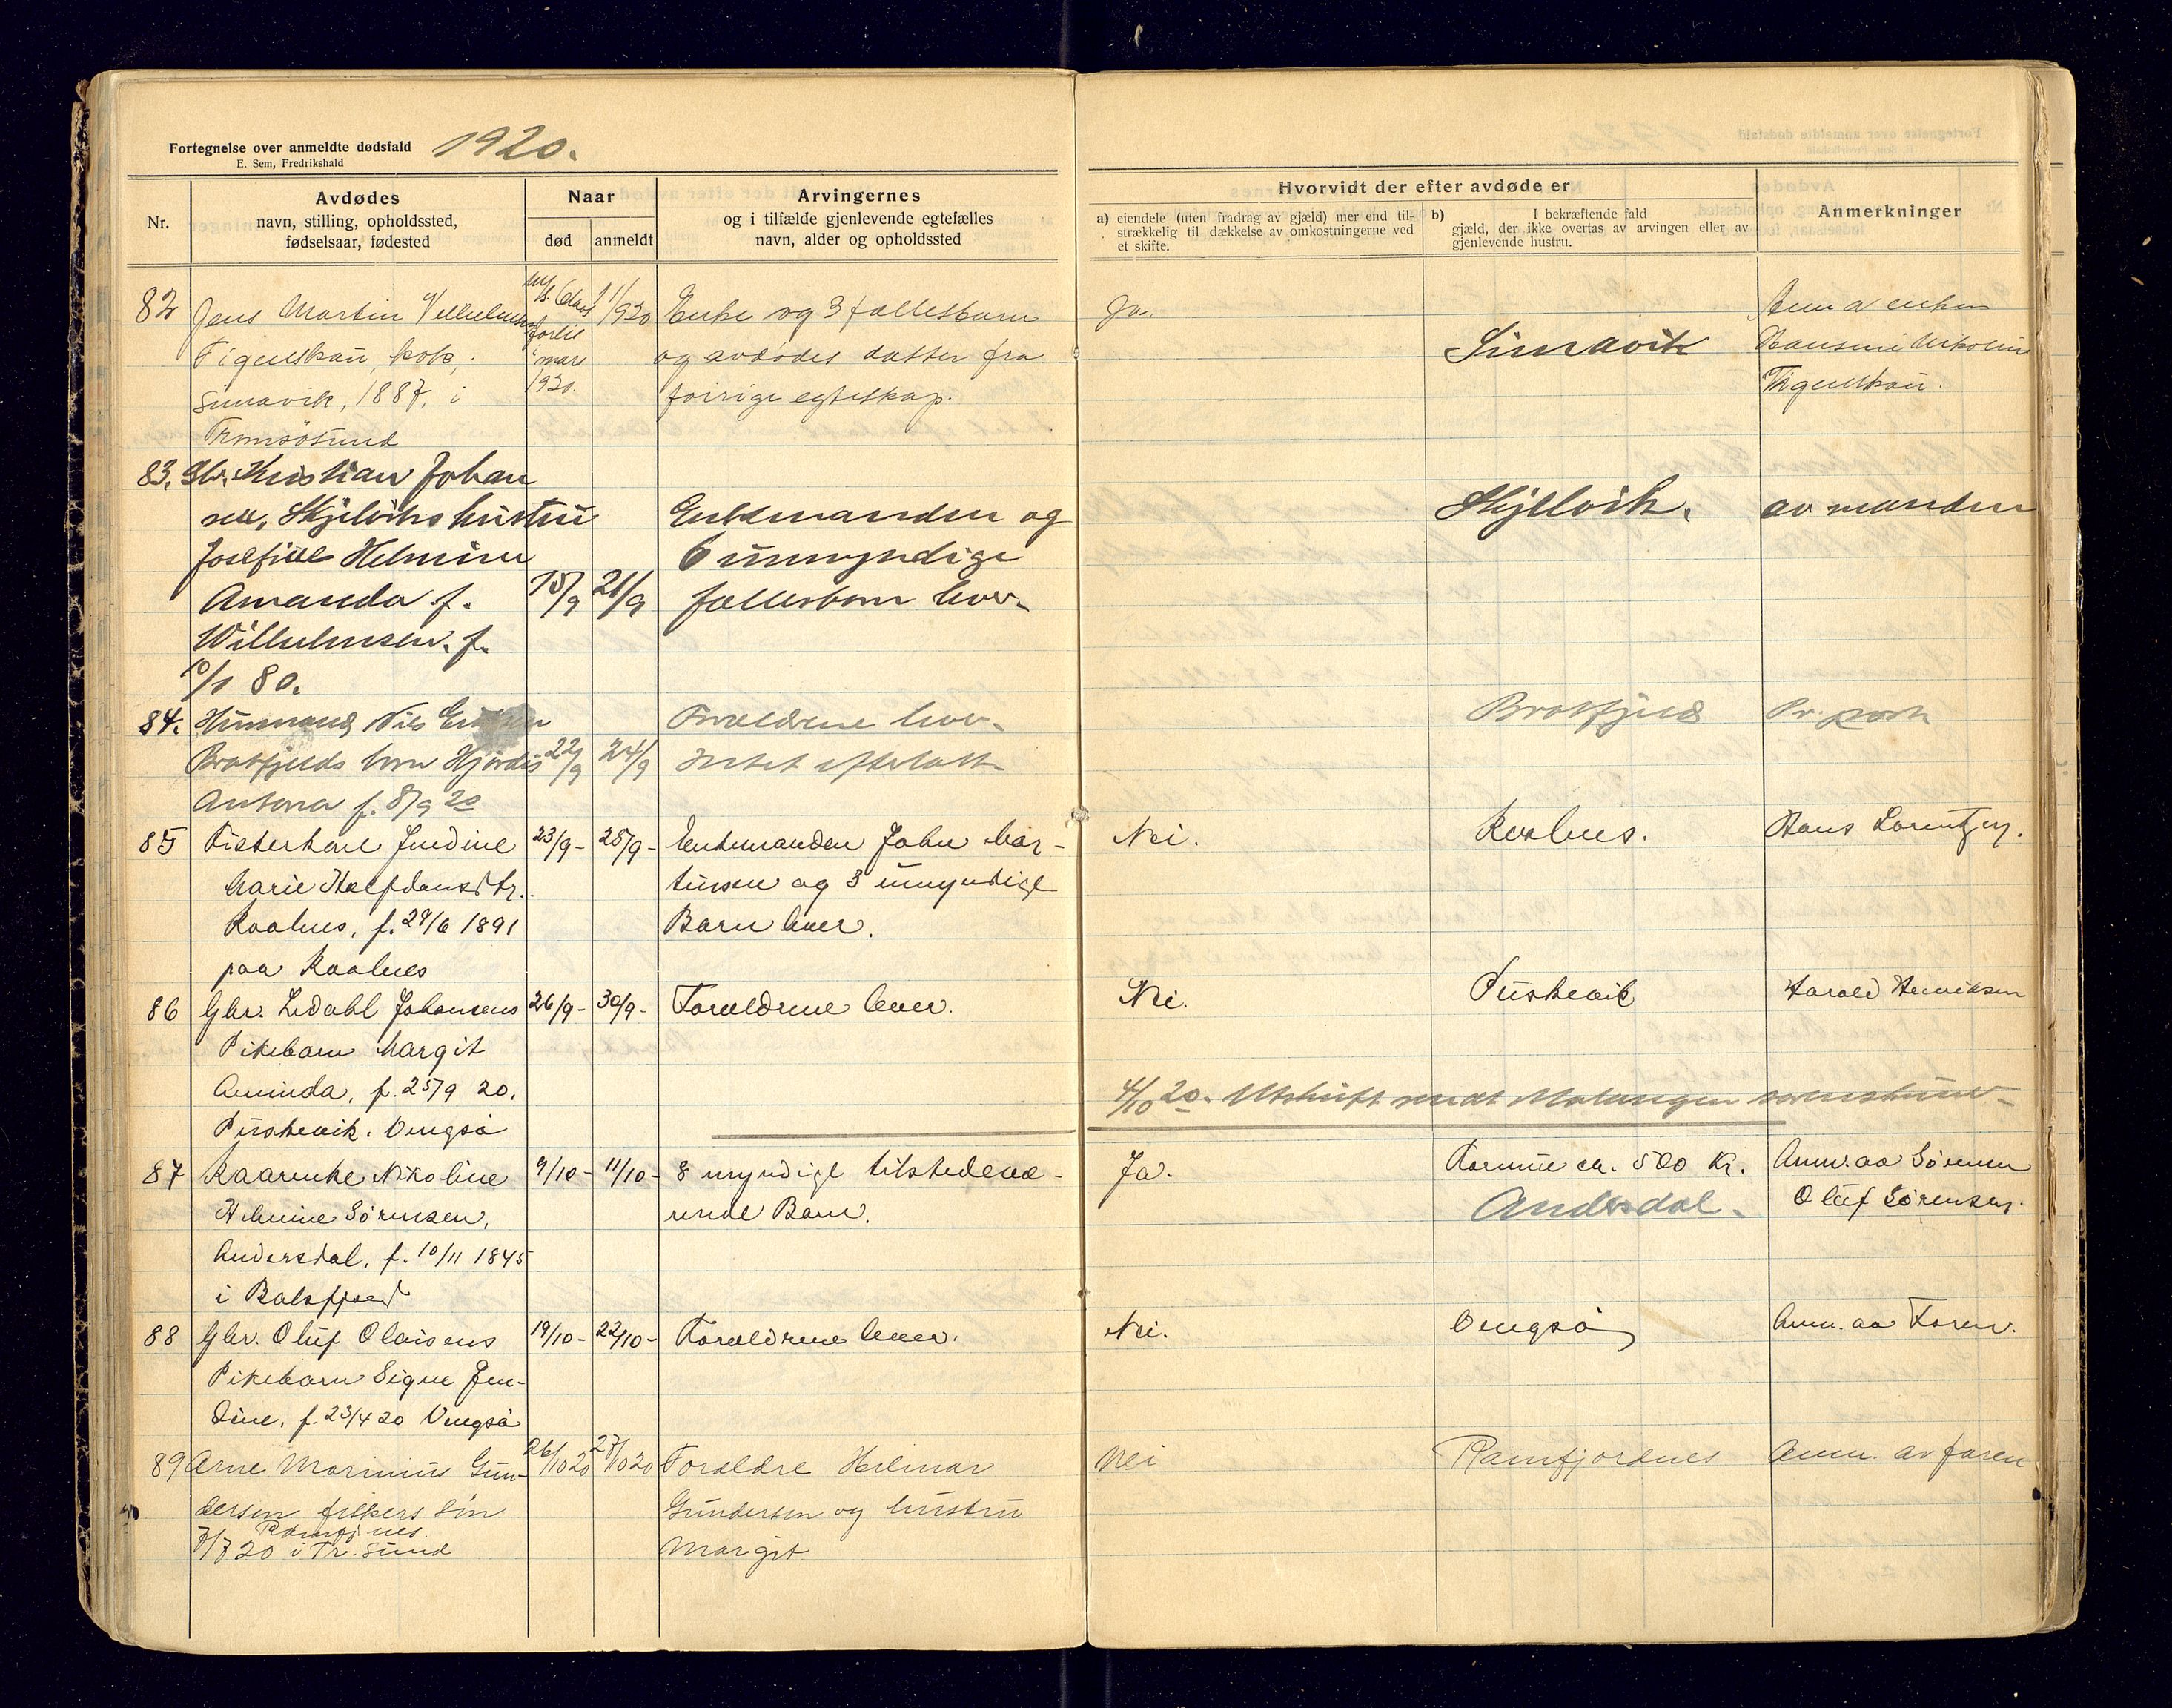 Fortegnelse over anmeldte dødsfald 1920.
E. Sem, Fredrikshald
Nr.
Avdødes
navn, stilling, opholdssted,
fødselsaar, fødested
Naar
død
anmeldt
Arvingernes
og i tilfælde gjenlevende egtefælles
navn, alder og opholdssted
Hvorvidt der efter avdøde er
a) eiendele (uten fradrag av gjæld) mer end til-
strækkelig til dækkelse av omkostningerne ved
et skifte.
b) I bekræftende fald
gjæld, der ikke overtas av arvingen eller av
gjenlevende hustru.
Anmerkninger
82 Jens Martin
forlis 1/1920 Enke og 3 fællesbarn Ja.
kok, mars og avdødes datter fra Simavik
Simavik, 1887, i 1920. forrige egteskap.
Tromsøsund
83. Kristian Johan
sen, Skjelviks hustru Enkemanden og Skjelvik. av manden
Josefine Helmine 6 umyndige
Amanda f. 15/9 21/9 fællesbarn lever.
Wilhelmsen. f.
10/1 80.
84. Nils Forældrene lever. Bratfjeld Pr. post
Bratfjelds barn Hjørdis 22/9 24/9 Intet efterlatt.
Antona f. 8/9 20
85 Fisterkone Jendine 23/9- 28/9- Enkemanden Johan Mar- Nei. Kaalnes. Hans Lorentzen.
Marie Halfdansdtr. tinsen og 3 umyndige
Kaalnes, f. 29/6 1891 Barn lever.
paa Kaalnes
86 Gbr. Ledahl Johansens 26/9- 30/9- Forældrene lever. Nei. Harald Henriksen
Pikebarn Margit
f. 25/9 20.
Vengsø
4/10 20. Utskrift sendt Malangen
87 Kaarenke Nikoline 9/10- 11/10- 8 myndige tilstedevæ- Ja. Formue ca. 500 Kr. Anm. aa Sønnen
Helmine Sørensen, rende Barn. Andersdal. Oluf Sørensen.
Andersdal, f. 10/11 1845
i Balsfjord
88 Gbr. Oluf Olaisens 19/10- 22/10- Forældrene lever. Nei. Vengsø Anm. aa Faren.
Pikebarn Signe Jen-
dine, f. 23/4 20 Vengsø
89 Arne Marinus Gun- 26/10 20 27/10 20 Foreldre Helmar Nei Ramfjordnes Anm. av faren
dersen fiskers søn Gundersen og hustru
Ramfj.nes.
7/7 20 i Tr.sund Margit